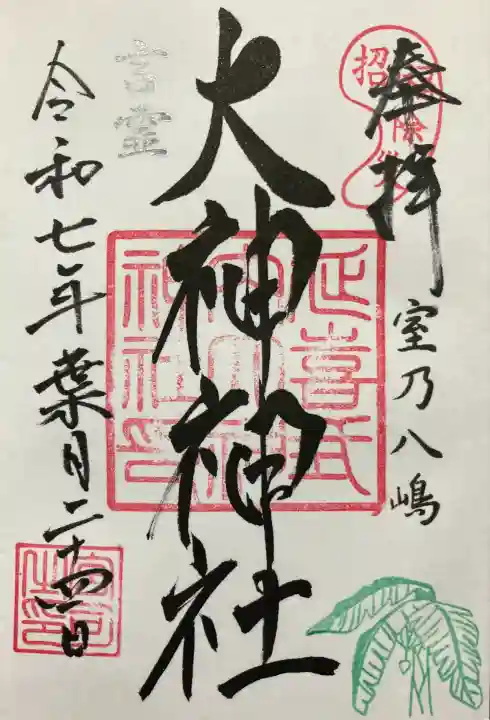 奉拝
室乃八嶋
大神神社
言霊
令和七年葉月二十四日
延喜式
神社印